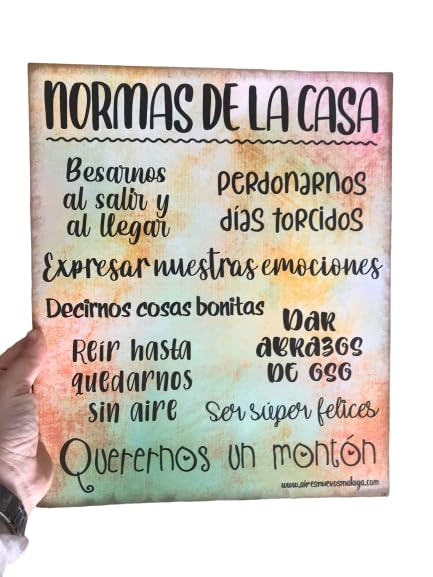 NORMAS DE LA CASA
Besarnos
al salir y
al llegar
perdonarnos
días torcidos
Expresar nuestras emociones
Decirnos cosas bonitas
DAR
ABRAZOS
DE OSO
Reír hasta
quedarnos
sin aire
Ser súper felices
Querernos un montón
www.airesnuevosmalaga.com